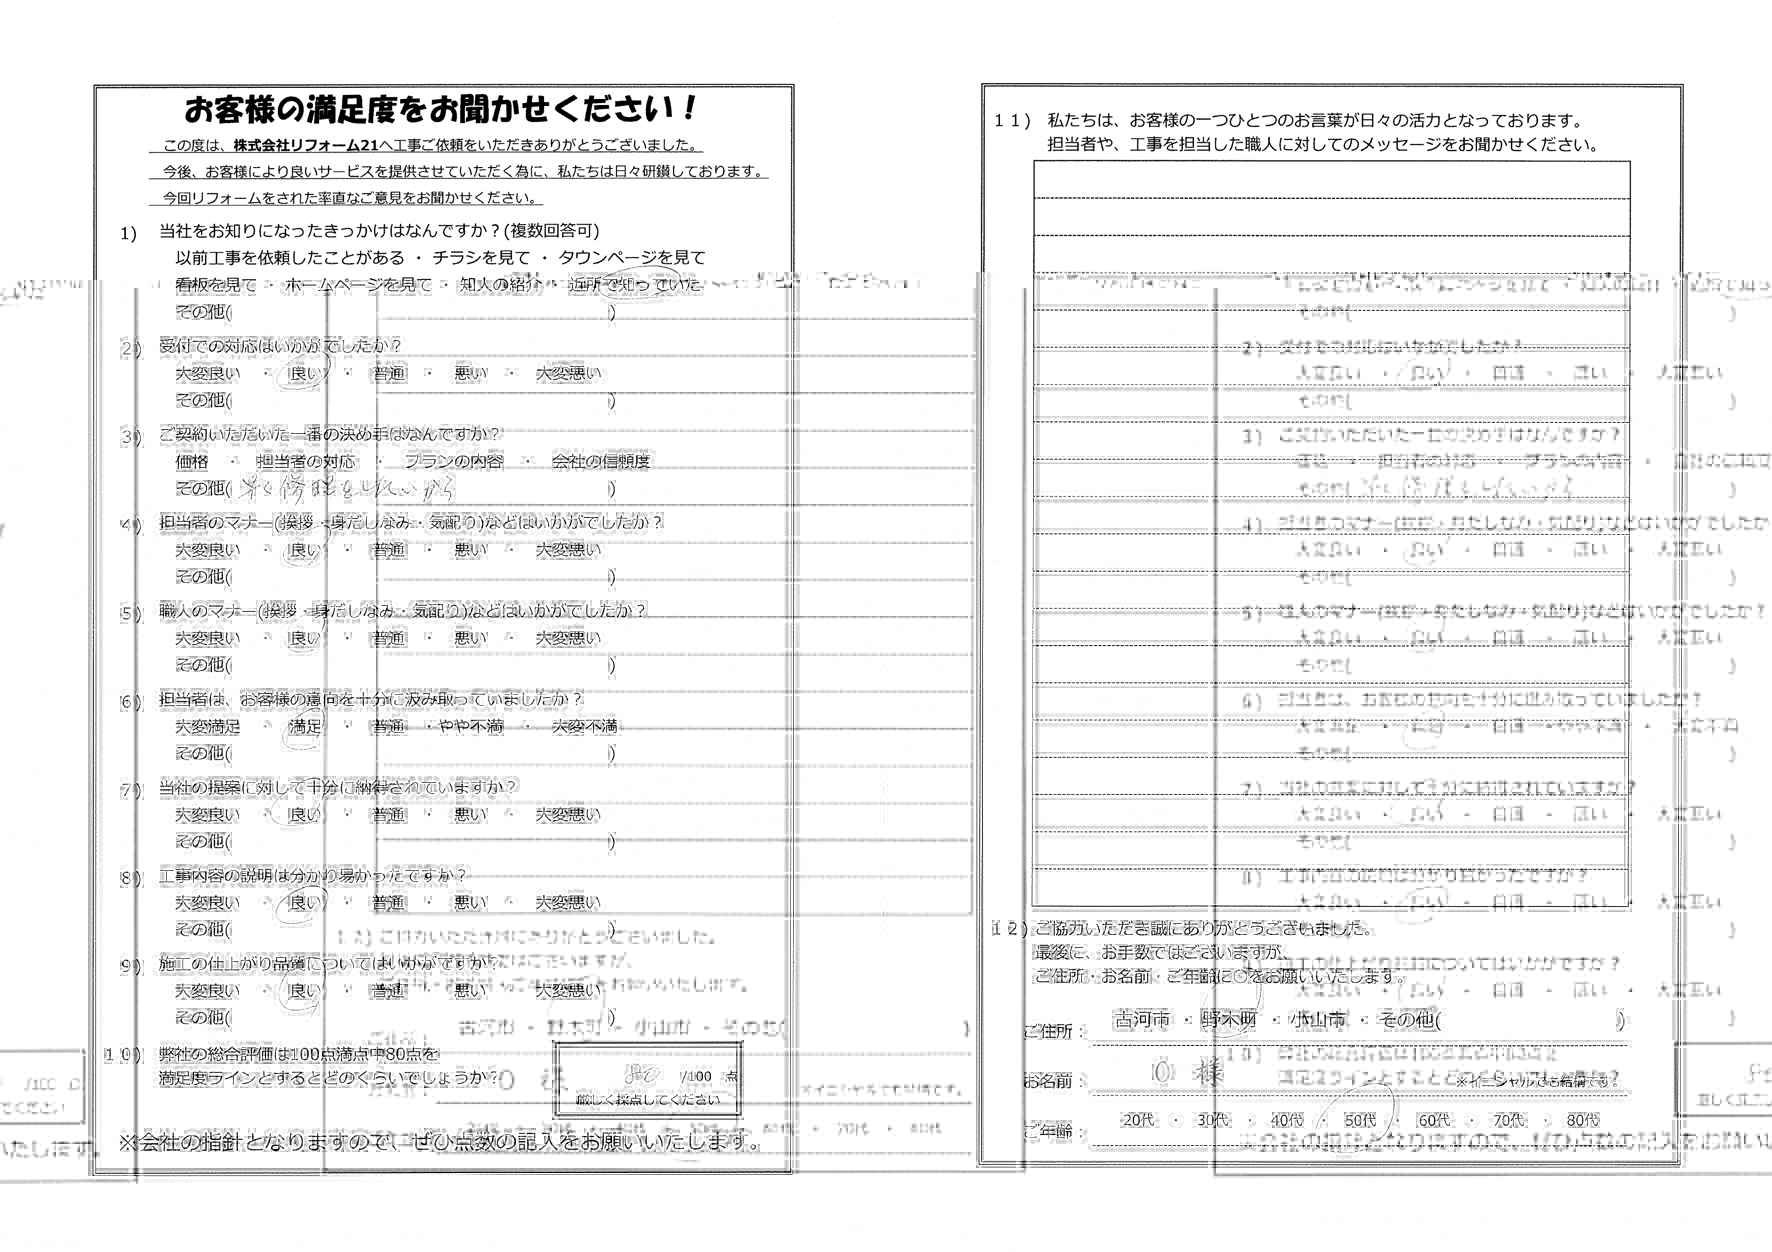 お客様の満足度をお聞かせください！
この度は、株式会社リフォーム21へ工事ご依頼をいただきありがとうございました。
今後、お客様により良いサービスを提供させていただく為に、私たちは日々研鑽しております。
今回リフォームをされた率直なご意見をお聞かせください。
1) 当社をお知りになったきっかけはなんですか？(複数回答可)
以前工事を依頼したことがある ・ チラシを見て ・ タウンページを見て
看板を見て ・ ホームページを見て ・ 知人の紹介 ・ 近所で知っていた
その他( )
2) 受付での対応はいかがでしたか？
大変良い ・ 良い ・ 普通 ・ 悪い ・ 大変悪い
その他( )
3) ご契約いただいた一番の決め手はなんですか？
価格 ・ 担当者の対応 ・ プランの内容 ・ 会社の信頼度
その他( )
4) 担当者のマナー(挨拶・身だしなみ・気配り)などはいかがでしたか？
大変良い ・ 良い ・ 普通 ・ 悪い ・ 大変悪い
その他( )
5) 職人のマナー(挨拶・身だしなみ・気配り)などはいかがでしたか？
大変良い ・ 良い ・ 普通 ・ 悪い ・ 大変悪い
その他( )
6) 担当者は、お客様の意向を十分に汲み取っていましたか？
大変満足 ・ 満足 ・ 普通 ・やや不満 ・ 大変不満
その他( )
7) 当社の提案に対して十分に納得されていますか？
大変良い ・ 良い ・ 普通 ・ 悪い ・ 大変悪い
その他( )
8) 工事内容の説明は分かり易かったですか？
大変良い ・ 良い ・ 普通 ・ 悪い ・ 大変悪い
その他( )
9) 施工の仕上がり品質についてはいかがですか？
大変良い ・ 良い ・ 普通 ・ 悪い ・ 大変悪い
その他( )
10) 弊社の総合評価は100点満点中80点を
満足度ラインとするとどのくらいでしょうか？
80 /100 点
厳しく採点してください
※会社の指針となりますので、ぜひ点数の記入をお願いいたします。
11) 私たちは、お客様の一つひとつのお言葉が日々の活力となっております。
担当者や、工事を担当した職人に対してのメッセージをお聞かせください。
12) ご協力いただき誠にありがとうございました。
最後に、お手数ではございますが、
ご住所・お名前・ご年齢に○をお願いいたします。
ご住所： 古河市 ・ 野木町 ・ 小山市 ・ その他( )
お名前： O 様 ※イニシャルでも結構です。
ご年齢： 20代 ・ 30代 ・ 40代 ・ 50代 ・ 60代 ・ 70代 ・ 80代